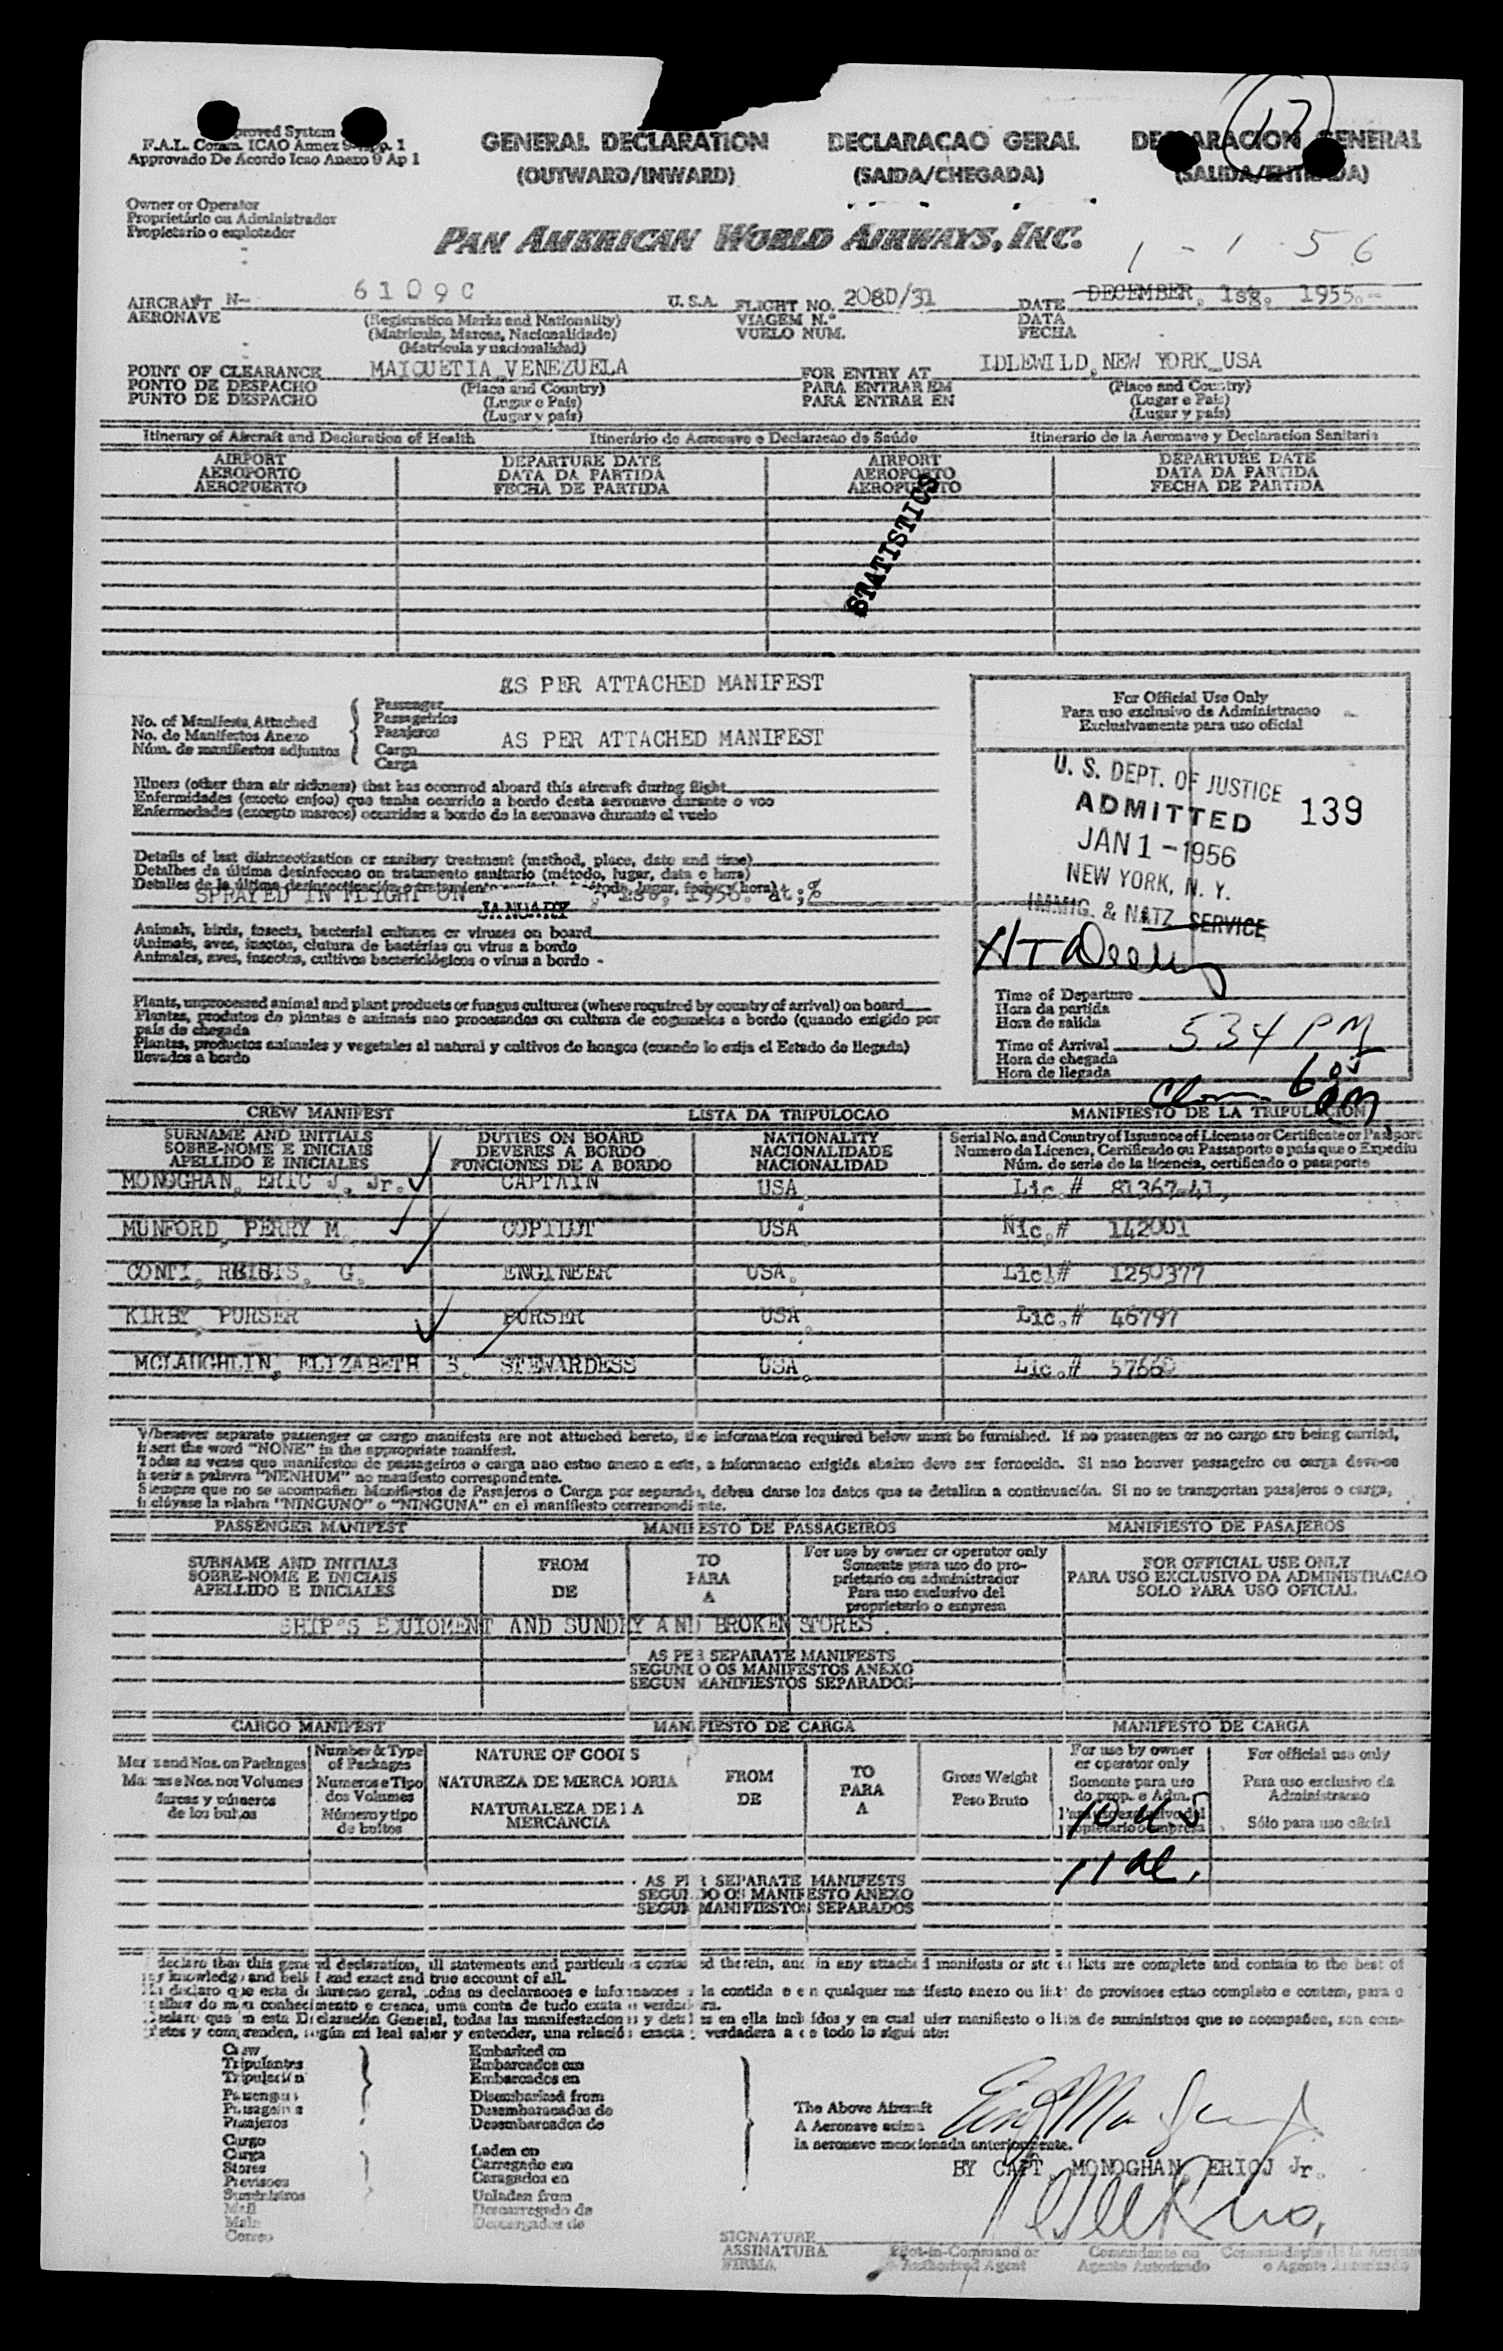 17
proved System
F.A.L. Comm. ICAO Annex 9 Ap. 1
Approvado De Acordo Icao Anexo 9 Ap 1
GENERAL DECLARATION
(OUTWARD/INWARD)
DECLARACAO GERAL
(SAIDA/CHEGADA)
DECLARACION GENERAL
(SALIDA/ENTRADA)
Owner or Operator
Proprietário ou Administrador
Propietario o explotador
PAN AMERICAN WORLD AIRWAYS, INC.
1 - 1 56
AIRCRAFT N- 6109C U.S.A. FLIGHT NO. 208D/31 DATE DECEMBER, 1sg. 1955.-
AERONAVE (Registration Marks and Nationality) VIAGEM N.º DATA
(Matricula, Marcas, Nacionalidade) VUELO NUM. FECHA
(Matricula y nacionalidad)
POINT OF CLEARANCE MAIQUETIA VENEZUELA FOR ENTRY AT IDLEWILD, NEW YORK USA
PONTO DE DESPACHO (Place and Country) PARA ENTRAR EM (Place and Country)
PUNTO DE DESPACHO (Lugar e País) PARA ENTRAR EN (Lugar e País)
(Lugar y país) (Lugar y país)
Itinerary of Aircraft and Declaration of Health Itinerário de Aeronave e Declaracao de Saúde Itinerario de la Aeronave y Declaracion Sanitaria
AIRPORT DEPARTURE DATE AIRPORT DEPARTURE DATE
AEROPORTO DATA DA PARTIDA AEROPORTO DATA DA PARTIDA
AEROPUERTO FECHA DE PARTIDA AEROPUERTO FECHA DE PARTIDA
STATISTICS
AS PER ATTACHED MANIFEST
Passenger
No. of Manifests Attached Passageirios
No. de Manifestos Anexo Pasajeros
Núm. de manifiestos adjuntos Cargo AS PER ATTACHED MANIFEST
Carga
For Official Use Only
Para uso exclusivo da Administracao
Exclusivamente para uso oficial
Illness (other than air sickness) that has occurred aboard this aircraft during flight
Enfermidades (exceto enjoo) que tenha ocorrido a bordo desta aeronave durante o voo
Enfermedades (excepto mareos) ocurridas a bordo de la aeronave durante el vuelo
U. S. DEPT. OF JUSTICE
ADMITTED 139
JAN 1 - 1956
NEW YORK, N. Y.
IMMIG. & NATZ SERVICE
Details of last disinsectization or sanitary treatment (method, place, date and time)
Detalhes da última desinfeccao ou tratamento sanitario (método, lugar, data e hora)
Detalles de la última desinsectización o tratamiento
SPRAYED IN FLIGHT ON JANUARY 1956. at;%
Animals, birds, insects, bacterial cultures or viruses on board
Animais, aves, insetos, clutura de bactérias ou virus a bordo
Animales, aves, insectos, cultivos bacteriológicos o virus a bordo -
Plants, unprocessed animal and plant products or fungus cultures (where required by country of arrival) on board
Plantas, produtos de plantas e animais nao processados ou cultura de cogumelos a bordo (quando exigido por
país de chegada
Plantas, productos animales y vegetales al natural y cultivos de hongos (cuando lo exija el Estado de llegada)
llevados a bordo
Time of Departure
Hora da partida
Hora de salida
Time of Arrival 534 PM
Hora de chegada
Hora de llegada
605 PM
CREW MANIFEST LISTA DA TRIPULOCAO MANIFIESTO DE LA TRIPULACION
SURNAME AND INITIALS DUTIES ON BOARD NATIONALITY Serial No. and Country of Issuance of License or Certificate or Passport
SOBRE-NOME E INICIAIS DEVERES A BORDO NACIONALIDADE Numero da Licenca, Certificado ou Passaporte e país que o Expediu
APELLIDO E INICIALES FUNCIONES DE A BORDO NACIONALIDAD Núm. de serie de la licencia, certificado o pasaporte
MONOGHAN, ERIC J. Jr. CAPTAIN USA. Lic.# 81367-41,
MUNFORD, PERRY M. COPILOT USA. Nic.# 142001
CONTI, REGIS, G. ENGINEER USA. Lic!# 1250377
KIRBY, PURSER PURSER USA. Lic.# 46797
MCLAUGHLIN, ELIZABETH S. STEWARDESS USA. Lic.# 57660
Whenever separate passenger or cargo manifests are not attached hereto, the information required below must be furnished. If no passengers or no cargo are being carried,
insert the word "NONE" in the appropriate manifest.
Todas as vezes que manifestos de passageiros e carga nao estao anexo a este, a informacao exigida abaixo deve ser fornecida. Si nao houver passageiro ou carga deve-se
inserir a palavra "NENHUM" no manifesto correspondente.
Siempre que no se acompañen Manifiestos de Pasajeros o Carga por separado, deben darse los datos que se detallan a continuación. Si no se transportan pasajeros o carga,
inclúyase la plabra "NINGUNO" o "NINGUNA" en el manifiesto correspondiente.
PASSENGER MANIFEST MANIFESTO DE PASSAGEIROS MANIFIESTO DE PASAJEROS
SURNAME AND INITIALS FROM TO For use by owner or operator only FOR OFFICIAL USE ONLY
SOBRE-NOME E INICIAIS PARA Somente para uso do pro- PARA USO EXCLUSIVO DA ADMINISTRACAO
APELLIDO E INICIALES DE A prietario ou administrador SOLO PARA USO OFICIAL
Para uso exclusivo del
proprietario o empresa
SHIP'S EXUIOMENT AND SUNDRY AND BROKEN STORES.
AS PER SEPARATE MANIFESTS
SEGUNDO OS MANIFESTOS ANEXO
SEGUN MANIFIESTOS SEPARADOS
CARGO MANIFEST MANIFIESTO DE CARGA MANIFESTO DE CARGA
Marks and Nos. on Packages Number & Type of Packages NATURE OF GOODS FROM TO Gross Weight For use by owner or operator only For official use only
Marcas e Nos. nos Volumes Numeros e Tipo dos Volumes NATUREZA DE MERCADORIA DE PARA Peso Bruto Somente para uso do prop. e Adm. Para uso exclusivo da Administracao
Marcas y números de los bultos Número y tipo de bultos NATURALEZA DE LA MERCANCIA A Para uso exclusivo del propietario o empresa Sólo para uso oficial
10 US
11 al.
AS PER SEPARATE MANIFESTS
SEGUNDO OS MANIFESTO ANEXO
SEGUN MANIFIESTOS SEPARADOS
declare that this general declaration, all statements and particulars contained therein, and in any attached manifests or stores lists are complete and contain to the best of
my knowledge and belief and exact and true account of all.
declaro que esta declaracao geral, todas as declaracoes e informacoes a la contida e en qualquer manifesto anexo ou lista de provisoes estao completo e contem, para o
melhor do meu conhecimento e crenca, uma conta de tudo exata e verdadera.
Declaro que en esta Declaración General, todas las manifestaciones y detalles en ella incluídos y en cualquier manifiesto o lista de suministros que se acompañen, son com-
pletos y comprenden, según mi leal saber y entender, una relación exacta y verdadera a de todo lo siguiente:
Crew Embarked on
Tripulantes Embarcados em
Tripulación Embarcados en
Passengers Disembarked from
Passageiros Desembaracados de
Pasajeros Desembarcados de
Cargo
Carga Laden on
Stores Carregado em
Previsoes Caragados en
Suministros Unladen from
Mail Descarregado de
Mala Descargados de
Correo
The Above Aircraft
A Aeronave acima
la aeronave mencionada anteriormente.
BY CAPT. MONOGHAN, ERICJ Jr.
SIGNATURE Pilot-in-Command or Comandante ou
ASSINATURA Authorized Agent Agente Autorizado o Agente Autorizado
FIRMA